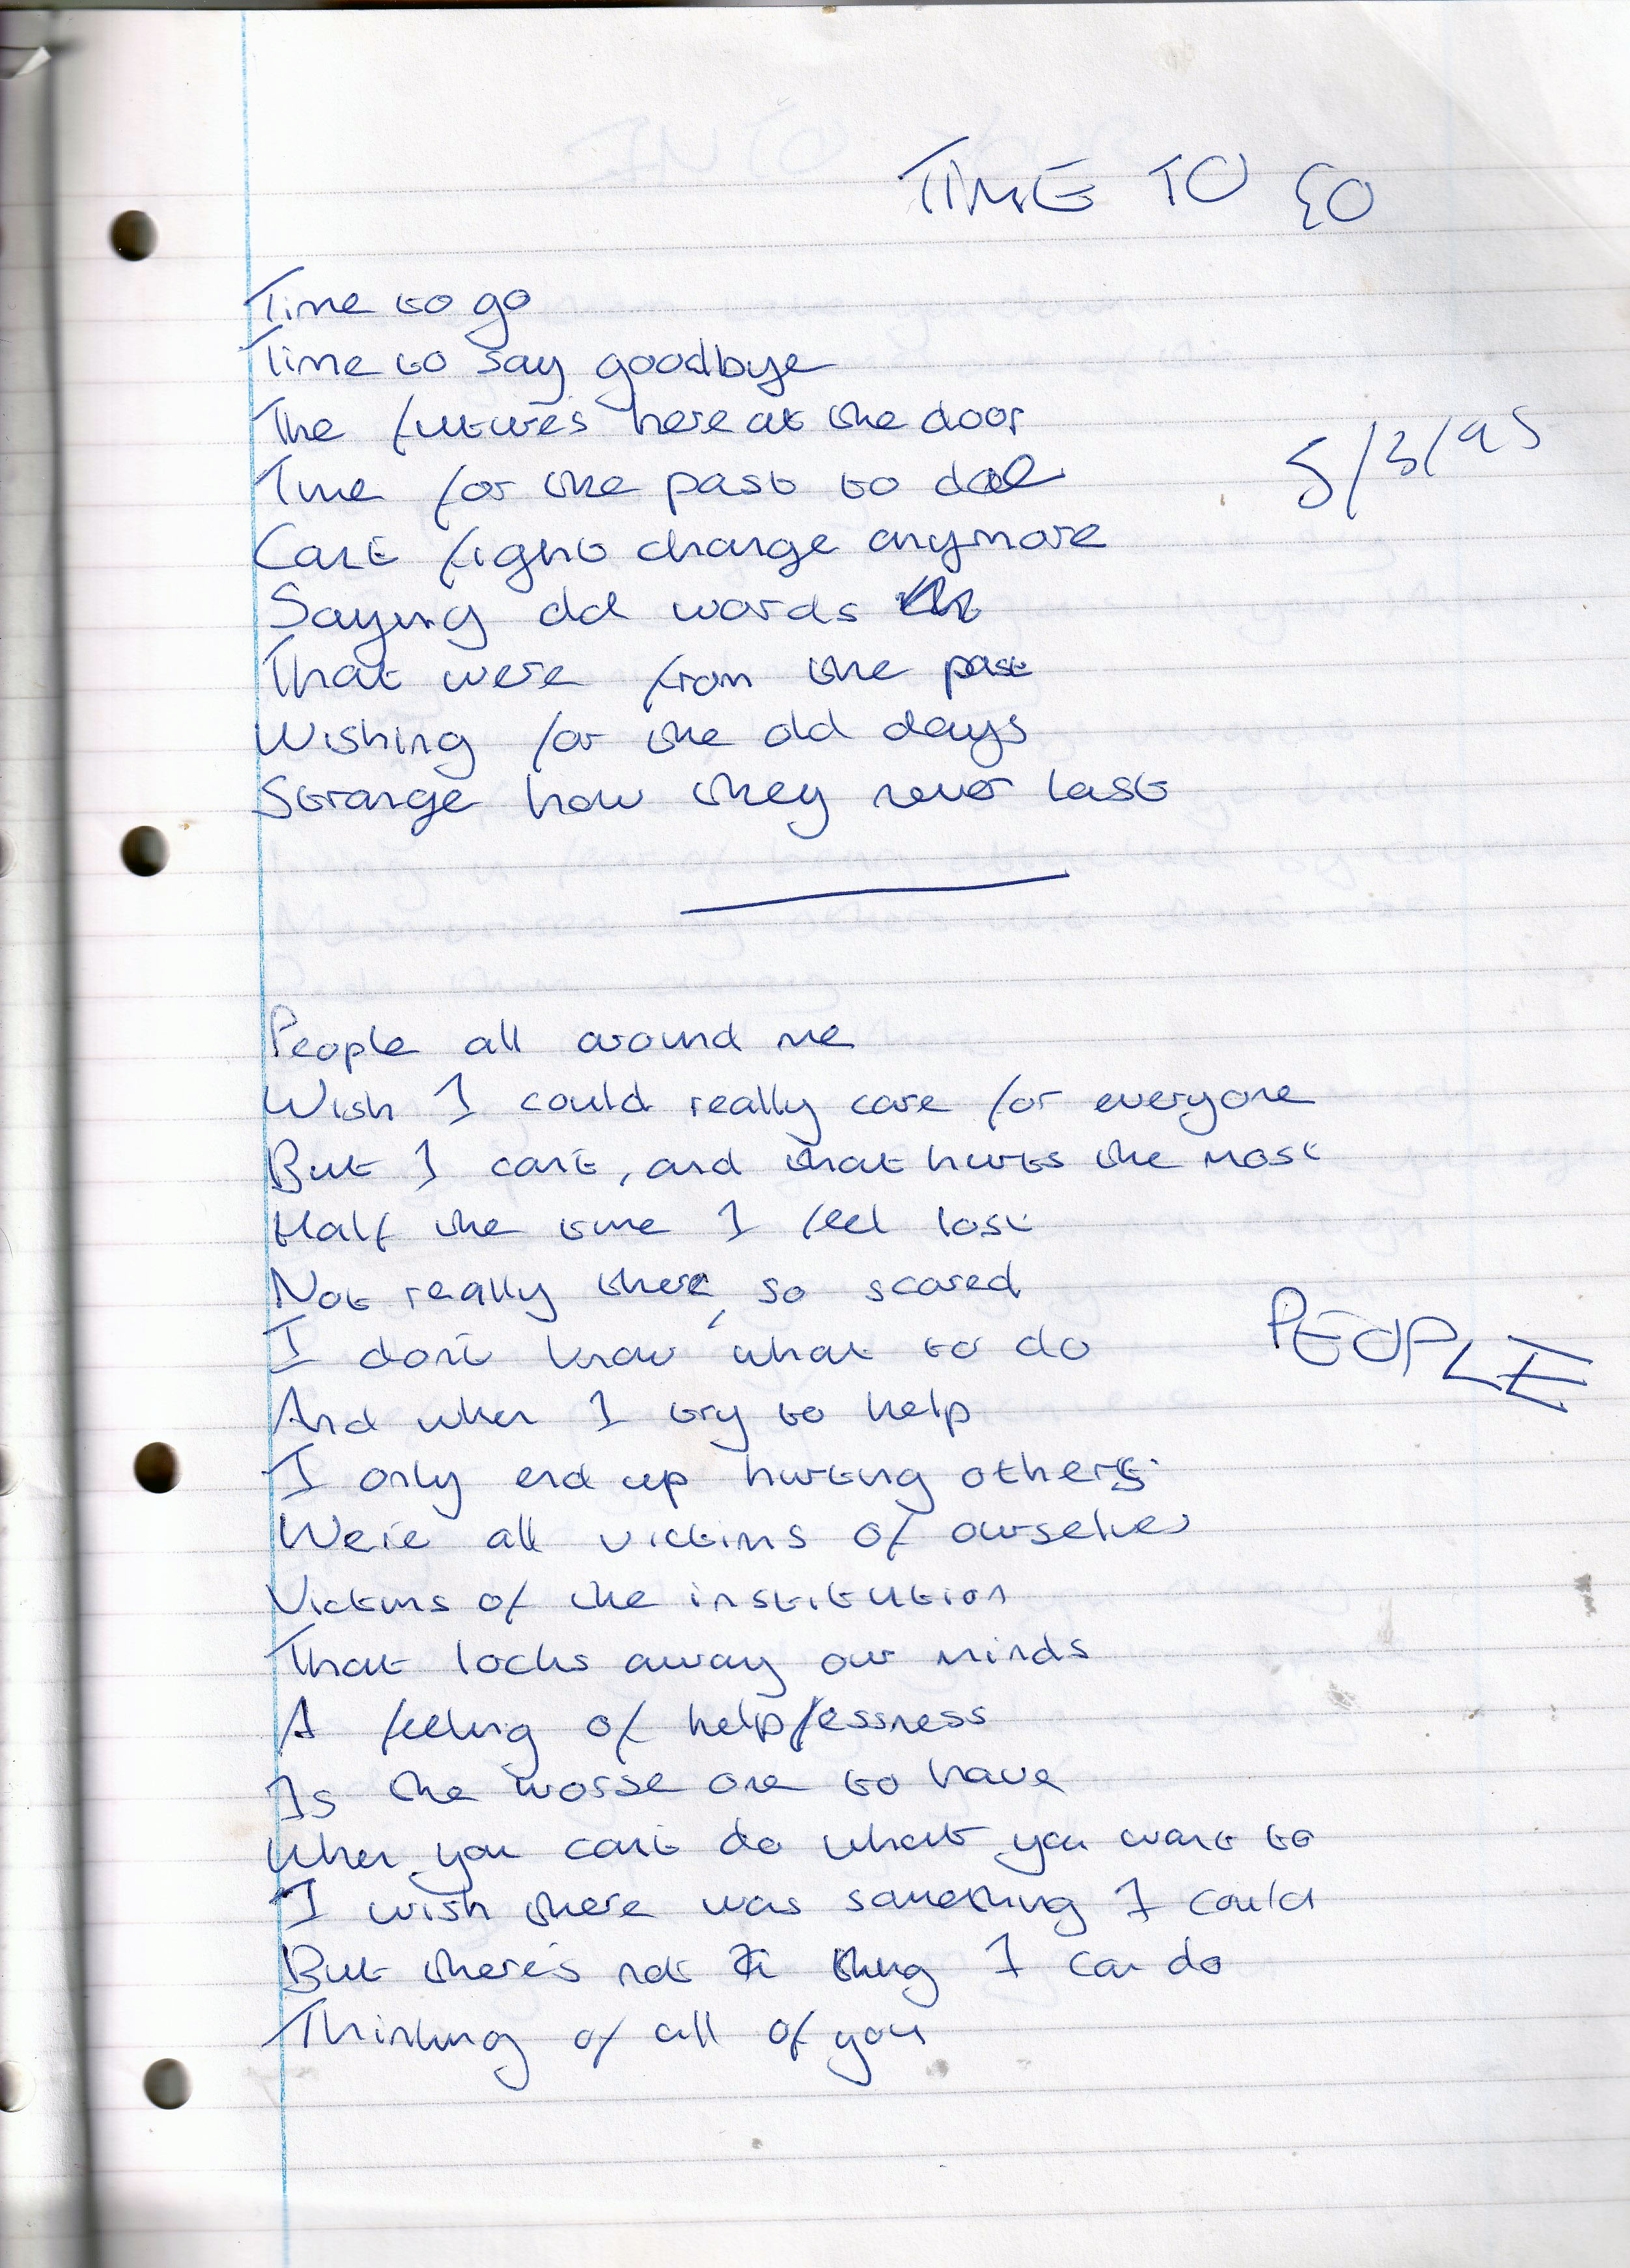 TIME TO GO
Time to go
Time to say goodbye
The futures here at the door
5/3/95
Time for the past to die
Can't fight change anymore
Saying old words
That were from the past
Wishing for the old days
Strange how they never last
People all around me
Wish I could really care for everyone
But I can't, and that hurts the most
Half the time I feel lost
Not really there, so scared
I don't know what to do
PEOPLE
And when I try to help
I only end up hurting others.
We're all victims of ourselves
Victims of the institution
That locks away our minds
A feeling of helplessness
Is the worse one to have
When you can't do what you want to
I wish there was something I could
But there's not a thing I can do
Thinking of all of you